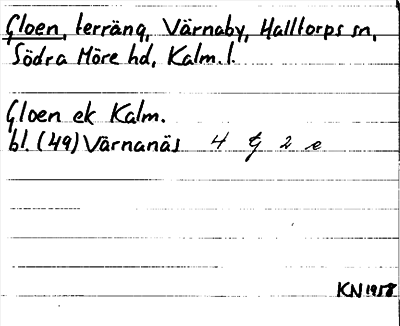 Gloen, terräng, Värnaby, Halltorps sn,
Södra Möre hd, Kalm. l.
Gloen ek Kalm.
bl. (49) Värnanäs 4 G 2 e
KN 1958